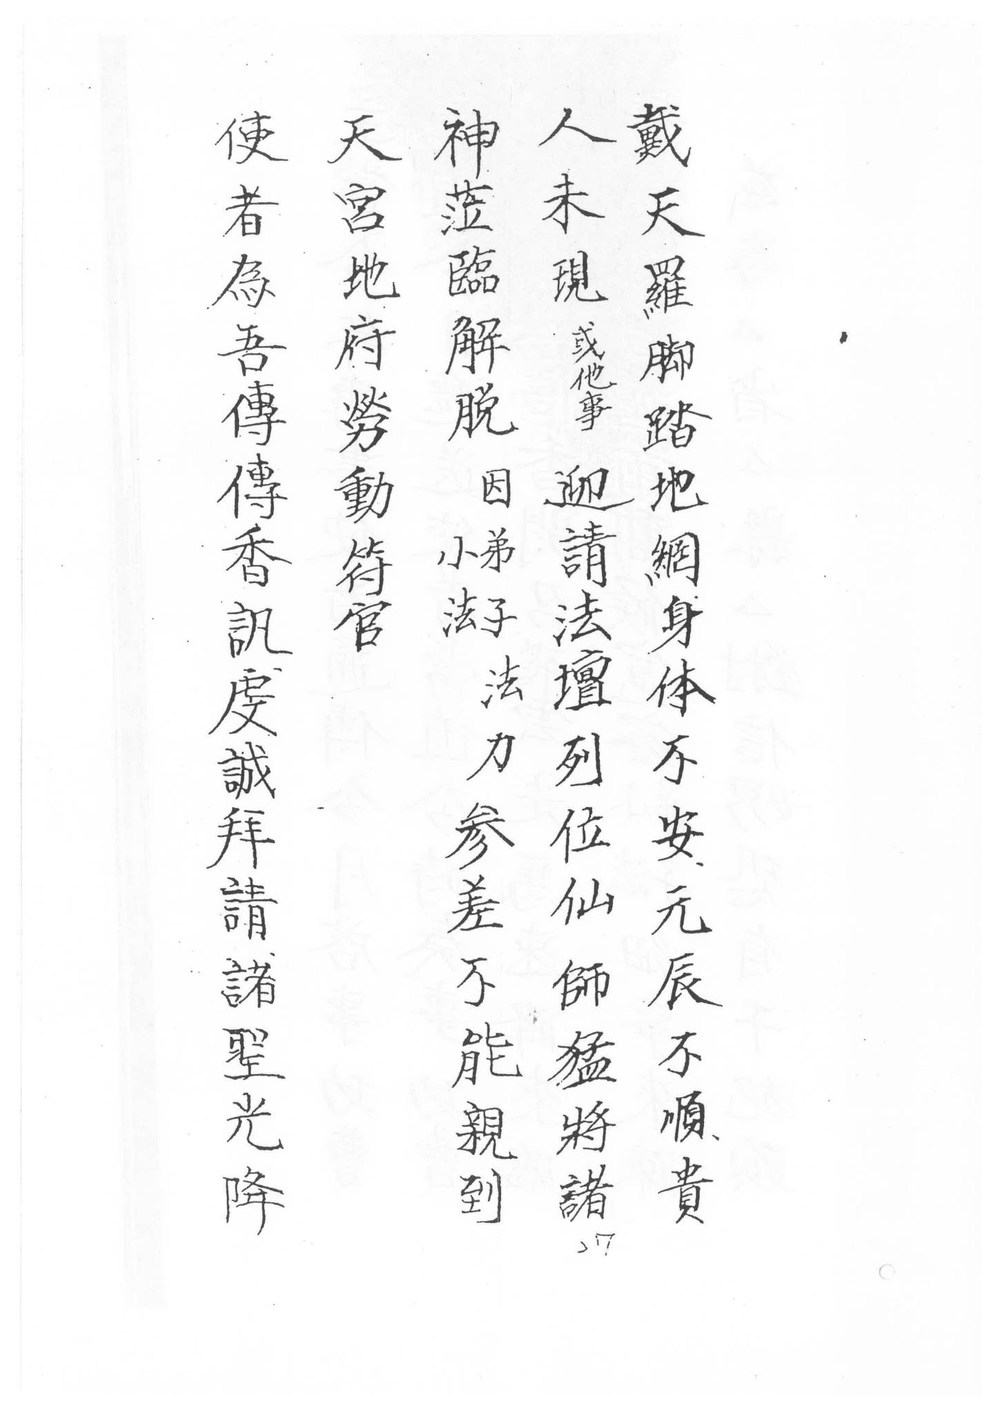 戴天羅脚踏地網身体不安、元辰不順、貴
人未現或他事迎請法壇列位仙師猛將諸
神蒞臨解脱因弟子小法法力参差不能親到
天宮地府勞動符官
使者為吾傳傳香訊、虔誠拜請、諸聖光降
27